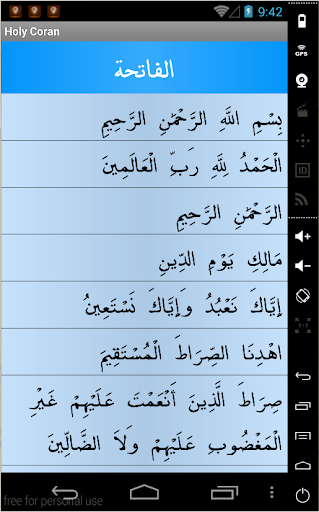 9:42
Holy Coran
الفاتحة
بِسْمِ اللَّهِ الرَّحْمَٰنِ الرَّحِيمِ
الْحَمْدُ لِلَّهِ رَبِّ الْعَالَمِينَ
الرَّحْمَٰنِ الرَّحِيمِ
مَالِكِ يَوْمِ الدِّينِ
إِيَّاكَ نَعْبُدُ وَإِيَّاكَ نَسْتَعِينُ
اهْدِنَا الصِّرَاطَ الْمُسْتَقِيمَ
صِرَاطَ الَّذِينَ أَنْعَمْتَ عَلَيْهِمْ غَيْرِ
الْمَغْضُوبِ عَلَيْهِمْ وَلَا الضَّالِّينَ
free for personal use
GPS
ID
1:1